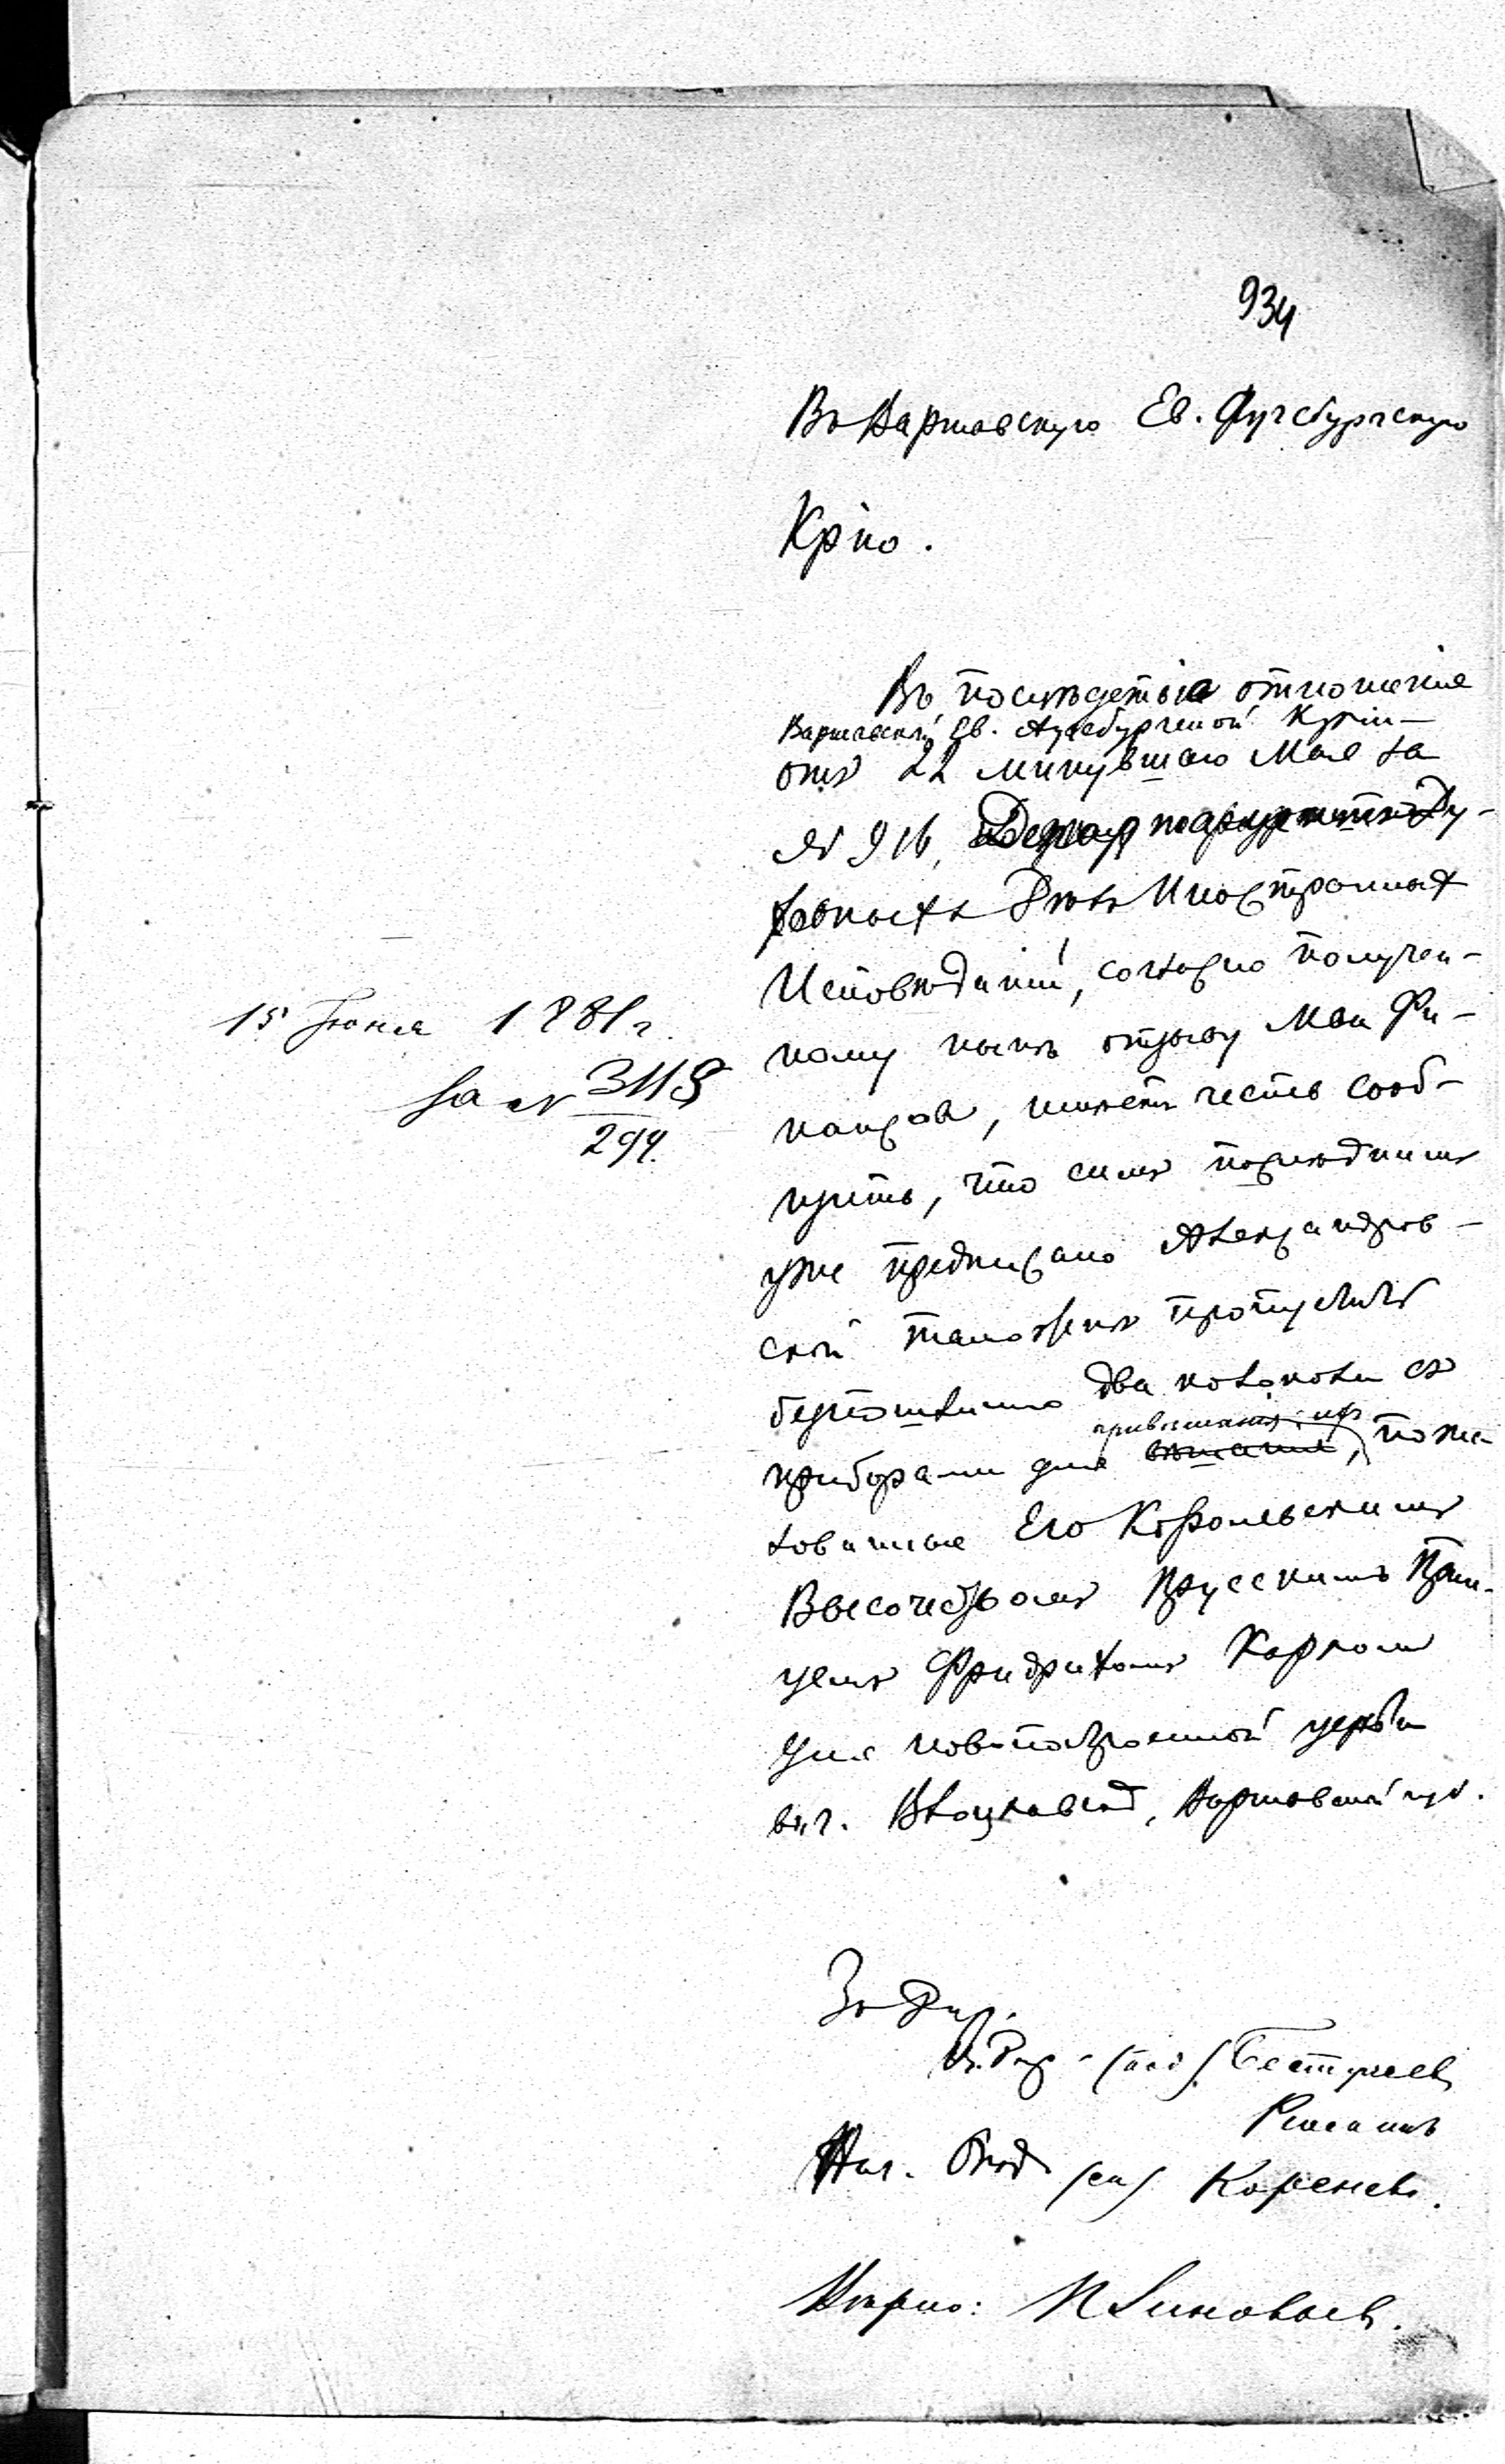 934
Въ Варшавскую Ев. Аугсбургскую
Крію.
Въ послѣдствіе отношенія
Варшавской Ев. Аугсбургской Крiи
отъ 22 минувшаго Мая за
№ 916, Департаментъ Ду-
ховныхъ Дѣлъ Иностранныхъ
Исповѣданій, согласно получен-
ному нынѣ отзыву Мва Фи-
нансовъ, имѣетъ честь сооб-
щить, что симъ послѣднимъ
уже предписано Александров-
ской таможнѣ пропустить
безпошлинно два колокола съ
приборами для вѣшанія, пожа-
привѣшанія ихъ
лованные Его Королевскимъ
Высочествомъ Прусскимъ Прин-
цемъ Фридрихомъ Карломъ
для новопостроенной церкви
въ г. Влоцлавскѣ, Варшавской губ.
15 Іюня 1881 г.
За № 3118
294.
За Дир.
В. Дир. (под). Бестужевъ
Рюминъ
Нач. Отд (ск) Кореневъ.
Вѣрно: Зиновьевъ.